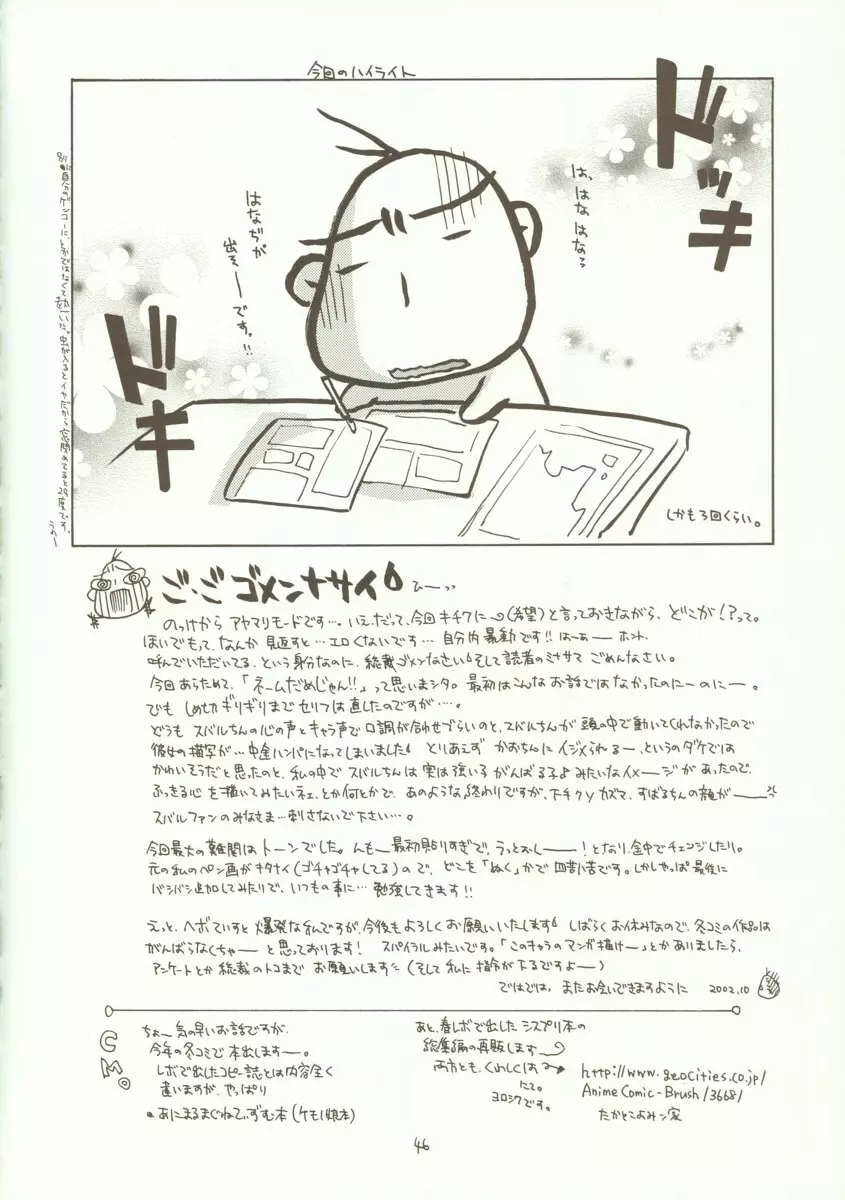 今回のハイライト
ドッキ
は、はなはな?
はなぢが
出そーですッ!!
ドキ
しかも3回くらい。
ご・ごゴメンナサイ
ひーっっ
のっけからアヤマリモードです…。いえ、だって、今回キチクに(希望)と言っておきながら、どこが!?って。
ほいでもって、なんか見返すと…エロくないです…自分内暴動です!!はーあーホント、
呼んでいただいてる、という身分なのに、総裁ゴメンなさい。そして読者のミナサマごめんなさい。
今回あらためて、「ネームだめじゃん!!」って思いまシタ。最初はこんなお話ではなかったのにーのにー。
でもしめ切りギリギリまでセリフは直したのですが…。
どうもスバルちんの心の声とキャラ声で口調が合わせづらいのと、スバルちんが頭の中で動いてくれなかったので
彼女の描写が…中途ハンパになってしまいました とりあえずかおちんにイジメられるー、というのダケでは
かわいそうだと思ったのと、私の中でスバルちんは実は強いろがんばる子よみたいなイメージがあったので、
ふっきる心を描いてみたいネェ、とか何とかで、あのような終わりですが、
スバルファンのみなさま…刺さないで下さい…。
今回最大の難関はトーンでした。んもー最初貼りすぎで、うっとおしーー!となり、途中でチェンジしたり。
元の私のペン画がキタナイ(ゴチャゴチャしてる)ので、どこを「ぬく」かで四苦八苦です。しかしやっぱ最後に
バシバシ追加してみたりで、いつもの事に…勉強してきます!!
えっと、ヘボていすと爆発な私ですが、今後もよろしくお願いいたします しばらくお休みなので、冬コミの作品は
がんばらなくちゃーと思っております! スパイラルみたいです。「このキャラのマンガ描けー」とかありましたら、
アンケートとか総裁のトコまでお願いします (そして私に指令が下るですよー)
ではでは、またお会いできますように 2002.10
CM。
ちょー気の早いお話ですが、
今年の冬コミで本出しますー。
レボで出したコピー誌とは内容全く
違いますが、やっぱり
●あにまるまぐねてぃずむ本(ケモノ娘本)
あと、春レボで出したシスプリ本の
総集編の再販します
両方とも、くわしくは
http://www.geocities.co.jp/
AnimeComic-Brush/3668/
にて。
ヨロシクです。
たかとこよみン家
46